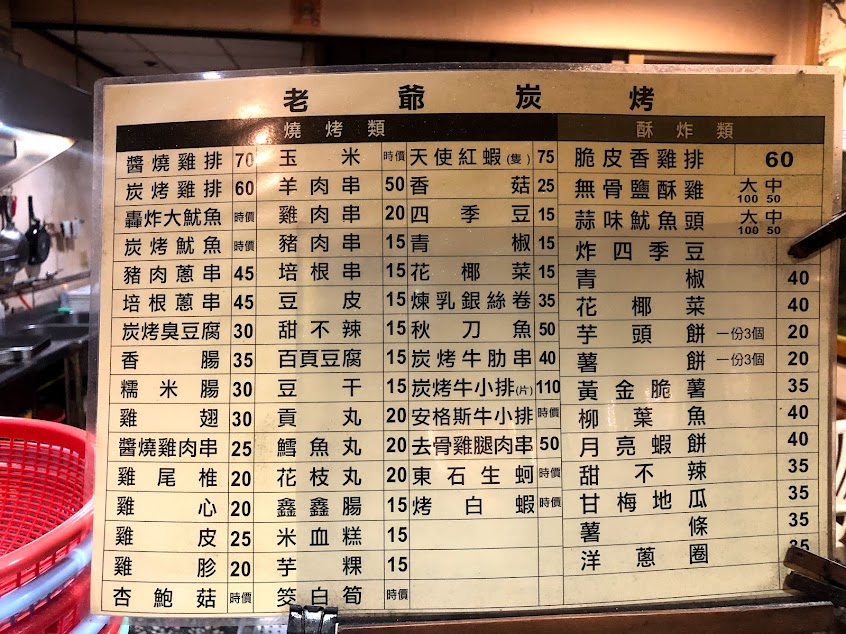 老爺炭烤
燒烤類
醬燒雞排 70
炭烤雞排 60
轟炸大魷魚 時價
炭烤魷魚 時價
豬肉蔥串 45
培根蔥串 45
炭烤臭豆腐 30
香腸 35
糯米腸 30
雞翅 30
醬燒雞肉串 25
雞尾椎 20
雞心 20
雞皮 25
雞胗 20
杏鮑菇 時價
玉米 時價
羊肉串 50
雞肉串 20
豬肉串 15
培根串 15
豆皮 15
甜不辣 15
百頁豆腐 15
豆干 15
貢丸 20
鱈魚丸 20
花枝丸 20
鑫鑫腸 15
米血糕 15
芋粿 15
筊白筍 時價
天使紅蝦(隻) 75
香菇 25
四季豆 15
青椒 15
花椰菜 15
煉乳銀絲卷 35
秋刀魚 50
炭烤牛肋串 40
炭烤牛小排(片) 110
安格斯牛小排 時價
去骨雞腿肉串 50
東石生蚵 時價
烤白蝦 時價
酥炸類
脆皮香雞排 60
無骨鹽酥雞 大100 中50
蒜味魷魚頭 大100 中50
炸四季豆
青椒 40
花椰菜 40
芋頭餅 一份3個 20
薯餅 一份3個 20
黃金脆薯 35
柳葉魚 40
月亮蝦餅 40
甜不辣 35
甘梅地瓜 35
薯條 35
洋蔥圈 35